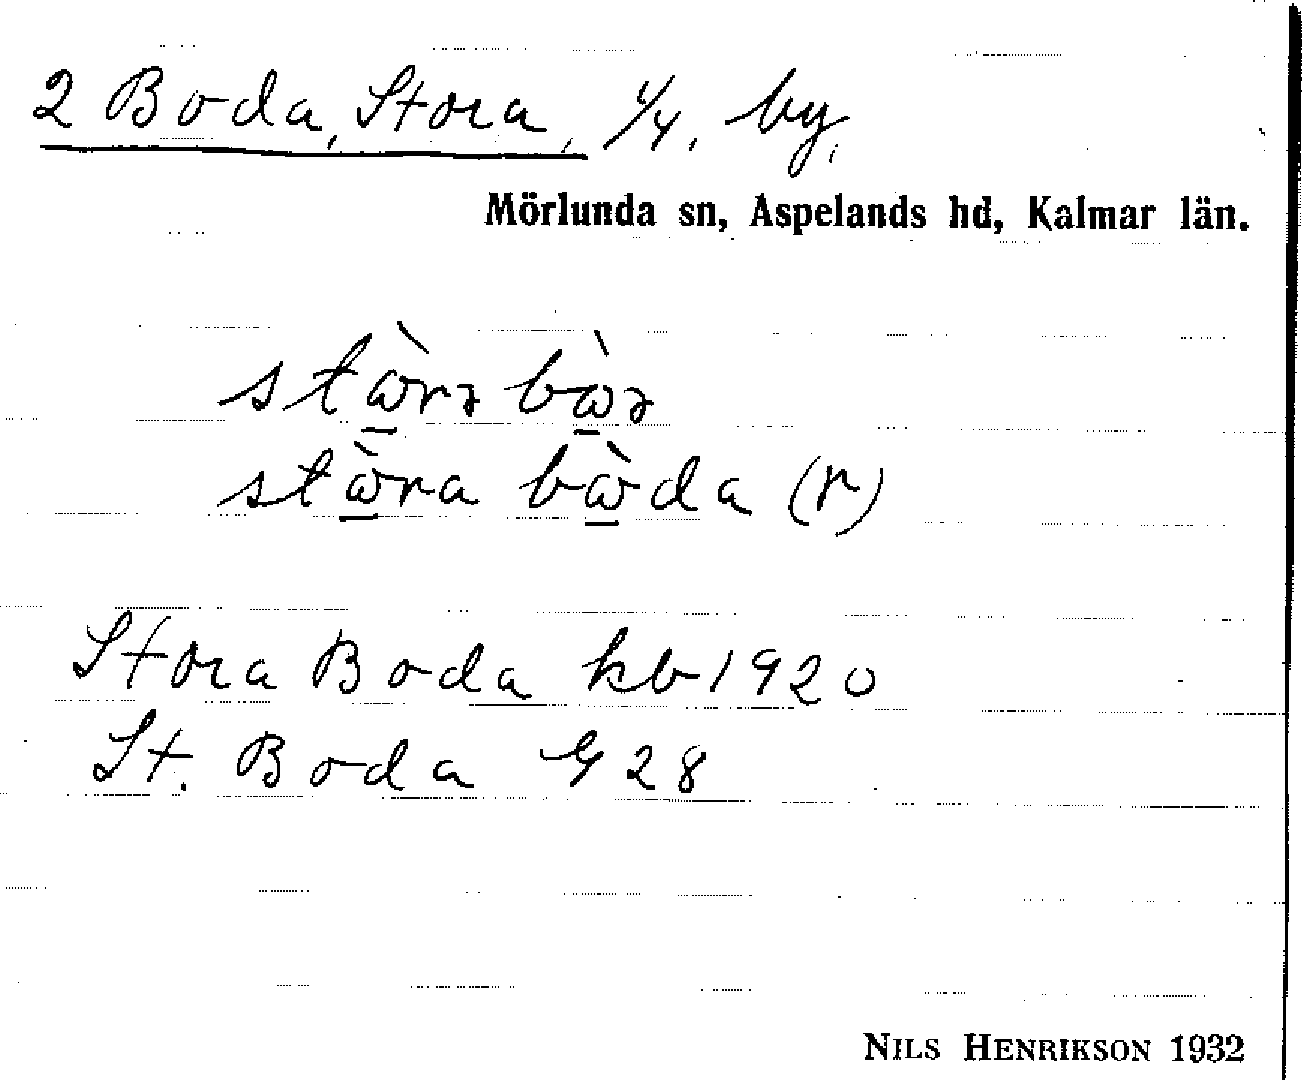 2 Boda, Stora, 1/4, by,
Mörlunda sn, Aspelands hd, Kalmar län.
stὼ̱rɜ bὼ̱ɜ
stὼ̱ra bὼ̱da (r)
Stora Boda kb 1920
St. Boda G 28
NILS HENRIKSON 1932